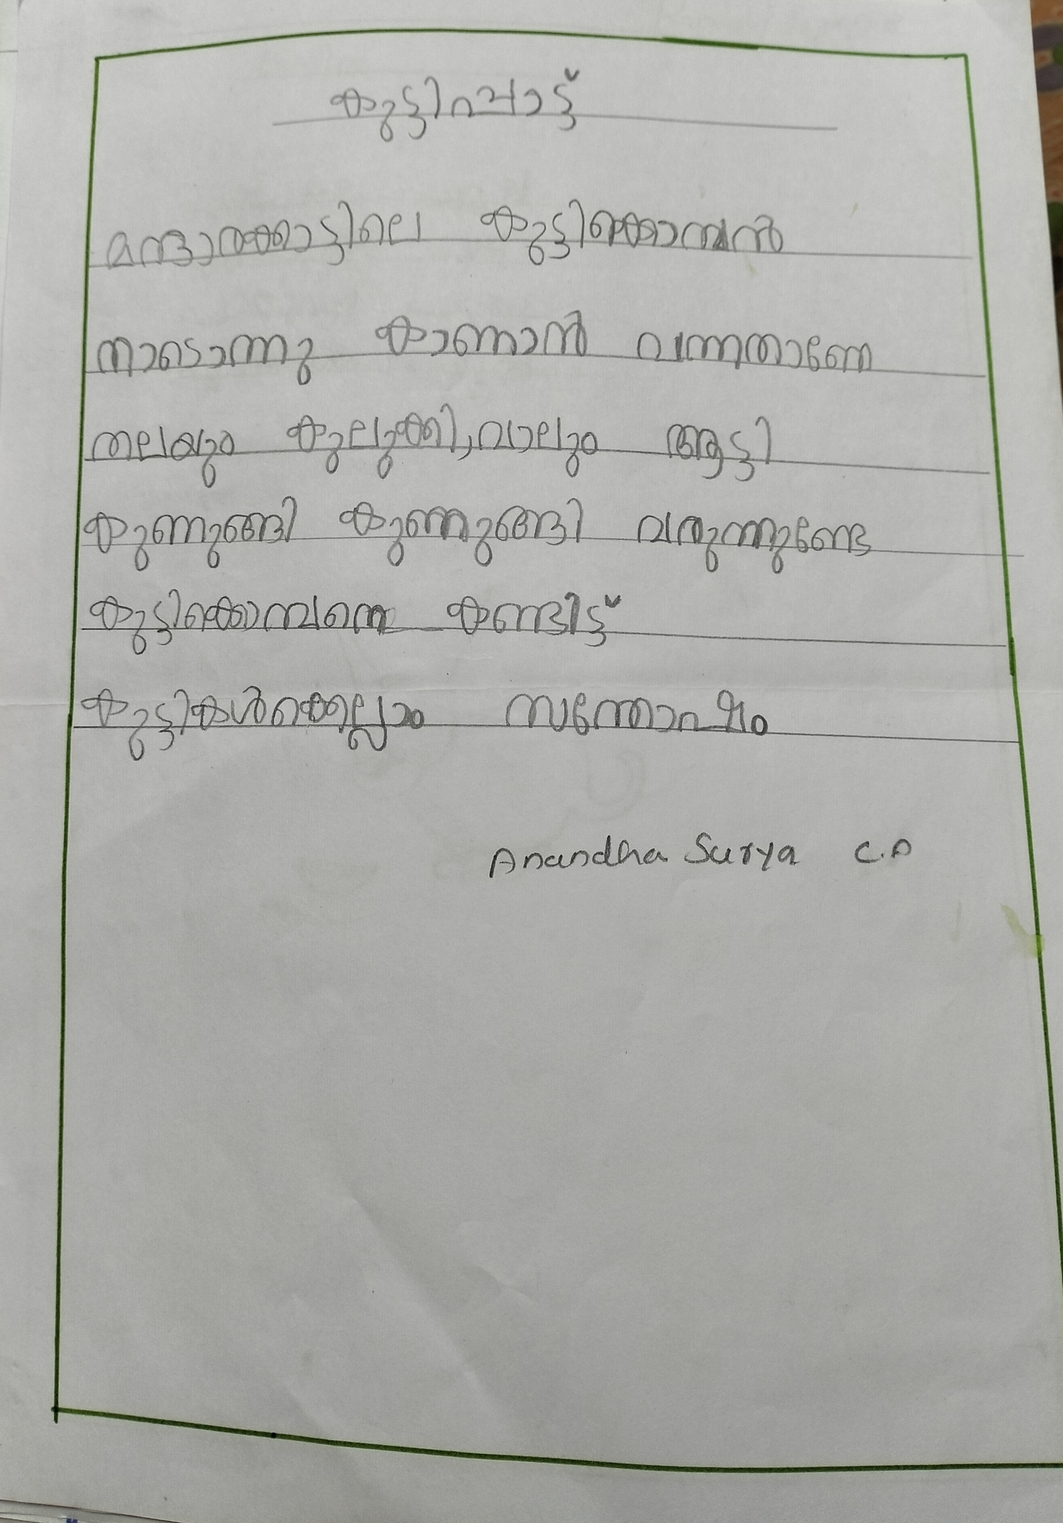 കുട്ടിപ്പാട്ട്
മന്ദാരക്കാട്ടിലെ കുട്ടിക്കൊമ്പൻ
നാടൊന്നു കാണാൻ വന്നതാണേ
തലയും കുലുക്കി, വാലും ആട്ടി
കുണുങ്ങി കുണുങ്ങി വരുന്നുണ്ടേ
കുട്ടിക്കൊമ്പനെ കണ്ടിട്ട്
കുട്ടികൾക്കെല്ലാം സന്തോഷം
Anandha Surya C.P